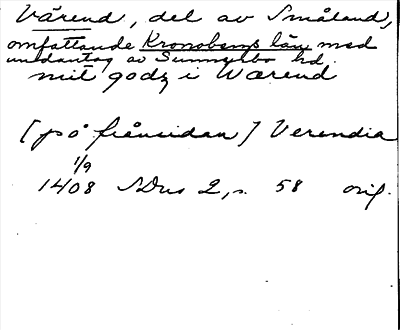 Värend, del av Småland,
omfattande Kronobergs län med
undantag av Sunnerbo hd.
mit godz i Wærend
[på frånsidan] Verendia
1/9
1408 SDns 2, s. 58 orig.